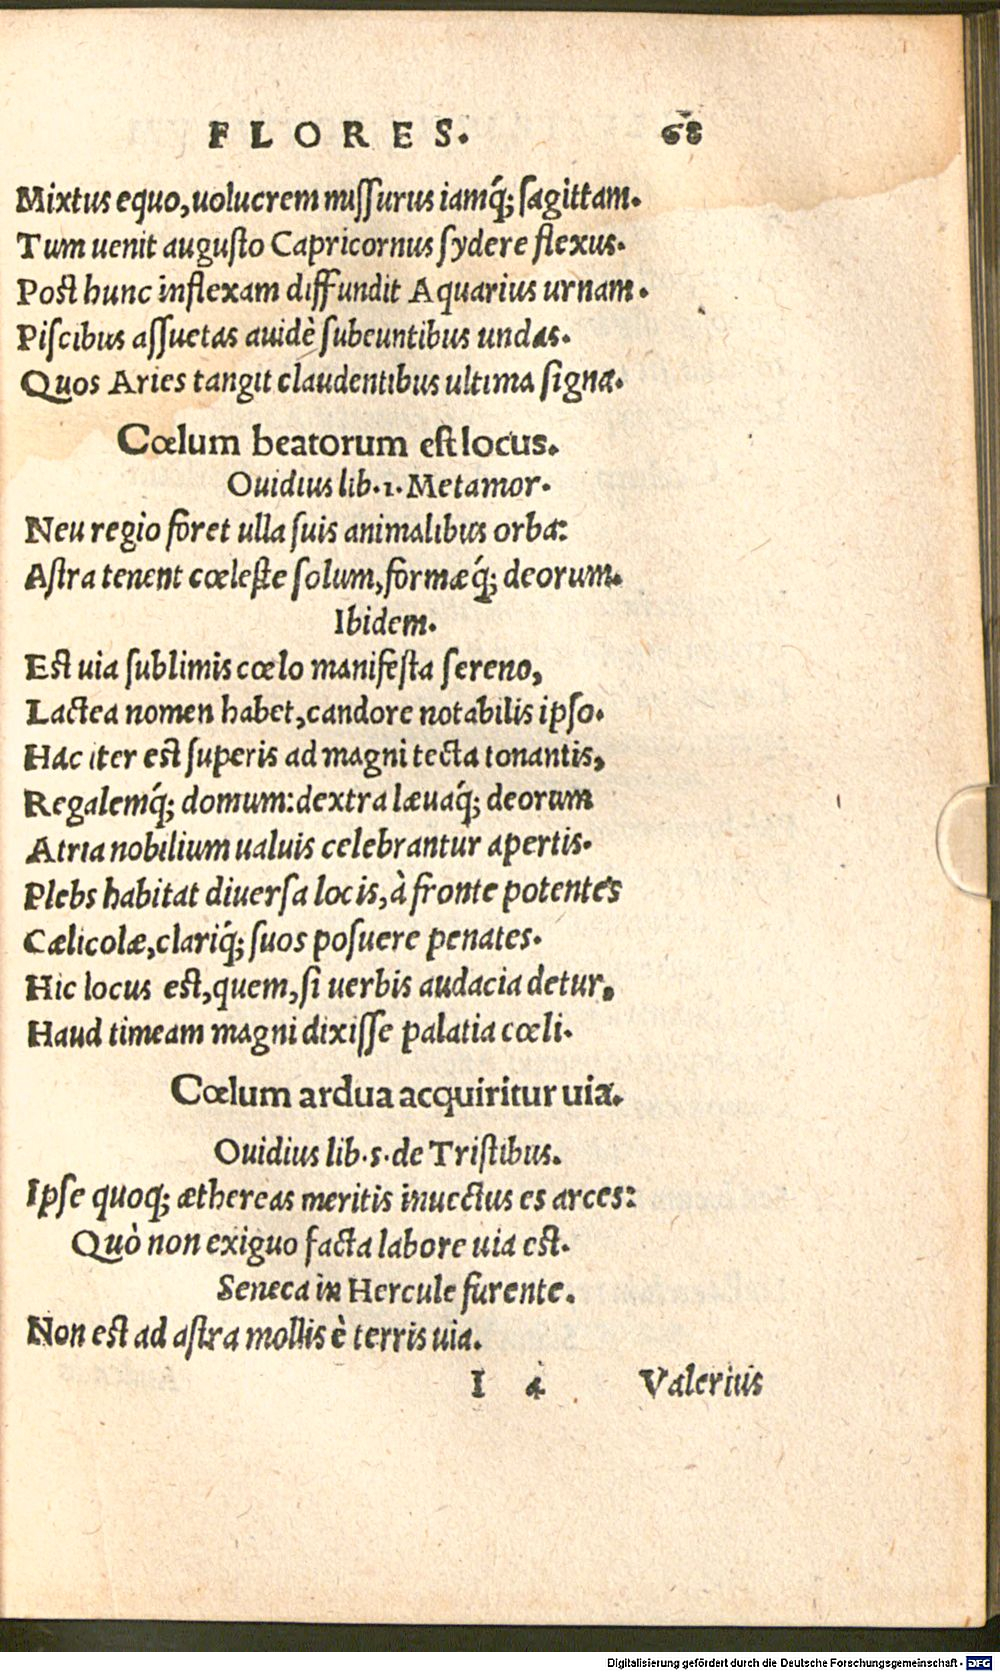 FLORES. 68
Mixtus equo, uolucrem missurus iamq́; sagittam.
Tum uenit augusto Capricornus sydere flexus.
Post hunc inflexam diffundit Aquarius urnam.
Piscibus assuetas auidè subeuntibus undas.
Quos Aries tangit claudentibus ultima signa.
Cœlum beatorum est locus.
Ouidius lib. 1. Metamor.
Neu regio foret ulla suis animalibus orba:
Astra tenent cœleste solum, formæq́; deorum.
Ibidem.
Est uia sublimis cœlo manifesta sereno,
Lactea nomen habet, candore notabilis ipso.
Hac iter est superis ad magni tecta tonantis,
Regalemq́; domum: dextra læuaq́; deorum
Atria nobilium ualuis celebrantur apertis.
Plebs habitat diuersa locis, à fronte potentes
Cælicolæ, clariq́; suos posuere penates.
Hic locus est, quem, si uerbis audacia detur,
Haud timeam magni dixisse palatia cœli.
Cœlum ardua acquiritur uia.
Ouidius lib. 5. de Tristibus.
Ipse quoq; æthereas meritis inuectus es arces:
Quò non exiguo facta labore uia est.
Seneca in Hercule furente.
Non est ad astra mollis è terris uia.
I 4 Valerius
Digitalisierung gefördert durch die Deutsche Forschungsgemeinschaft - DFG